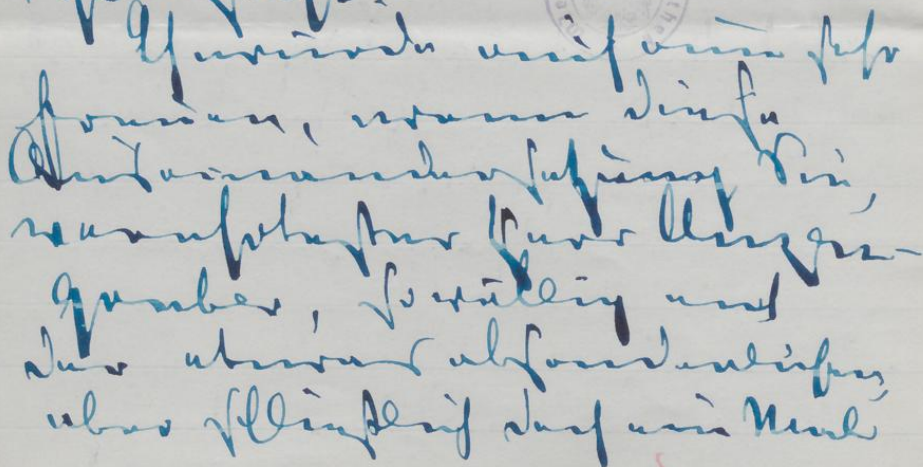 würde mich nun sehr
freuen, wenn diese
Auseinandersetzung Sie,
verehrtester Herr Anzen-
gruber, so völlig mit
der etwas absonderlichen,
aber schließlich doch ein Mal